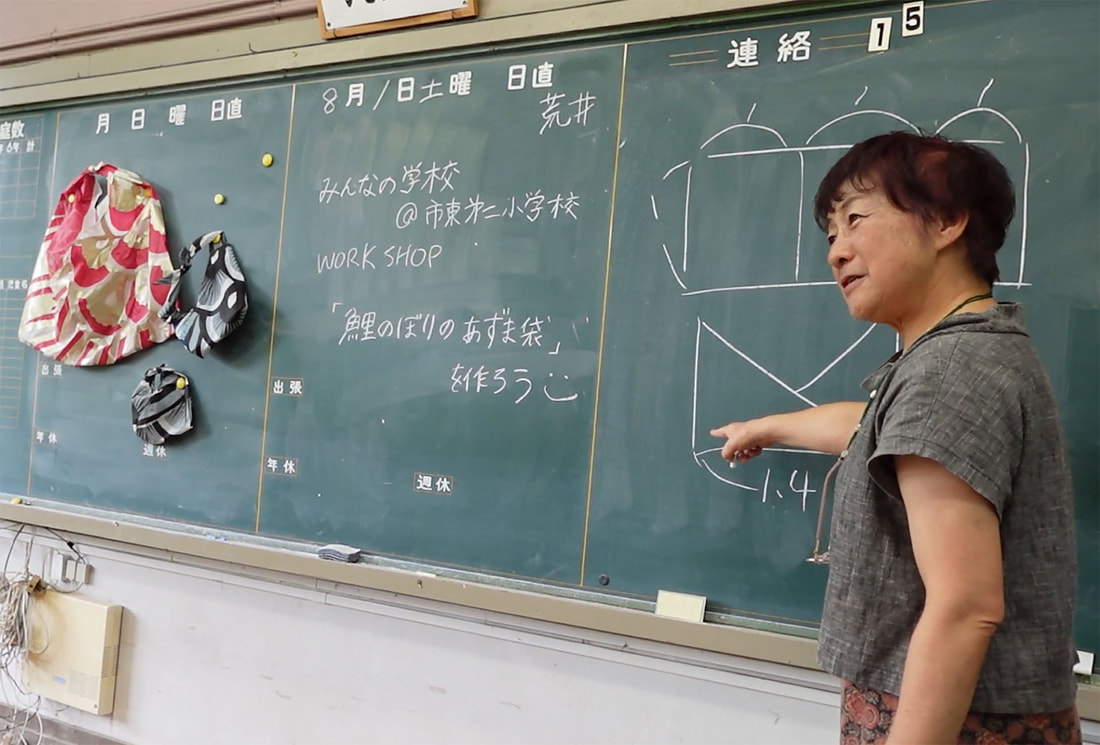 月 日 曜 日直
出張
年休
週休
8月1日土曜 日直
荒井
みんなの学校
@市東第二小学校
WORK SHOP
「鯉のぼりのあずま袋」
を作ろう
出張
年休
週休
連絡
1 5
1.4